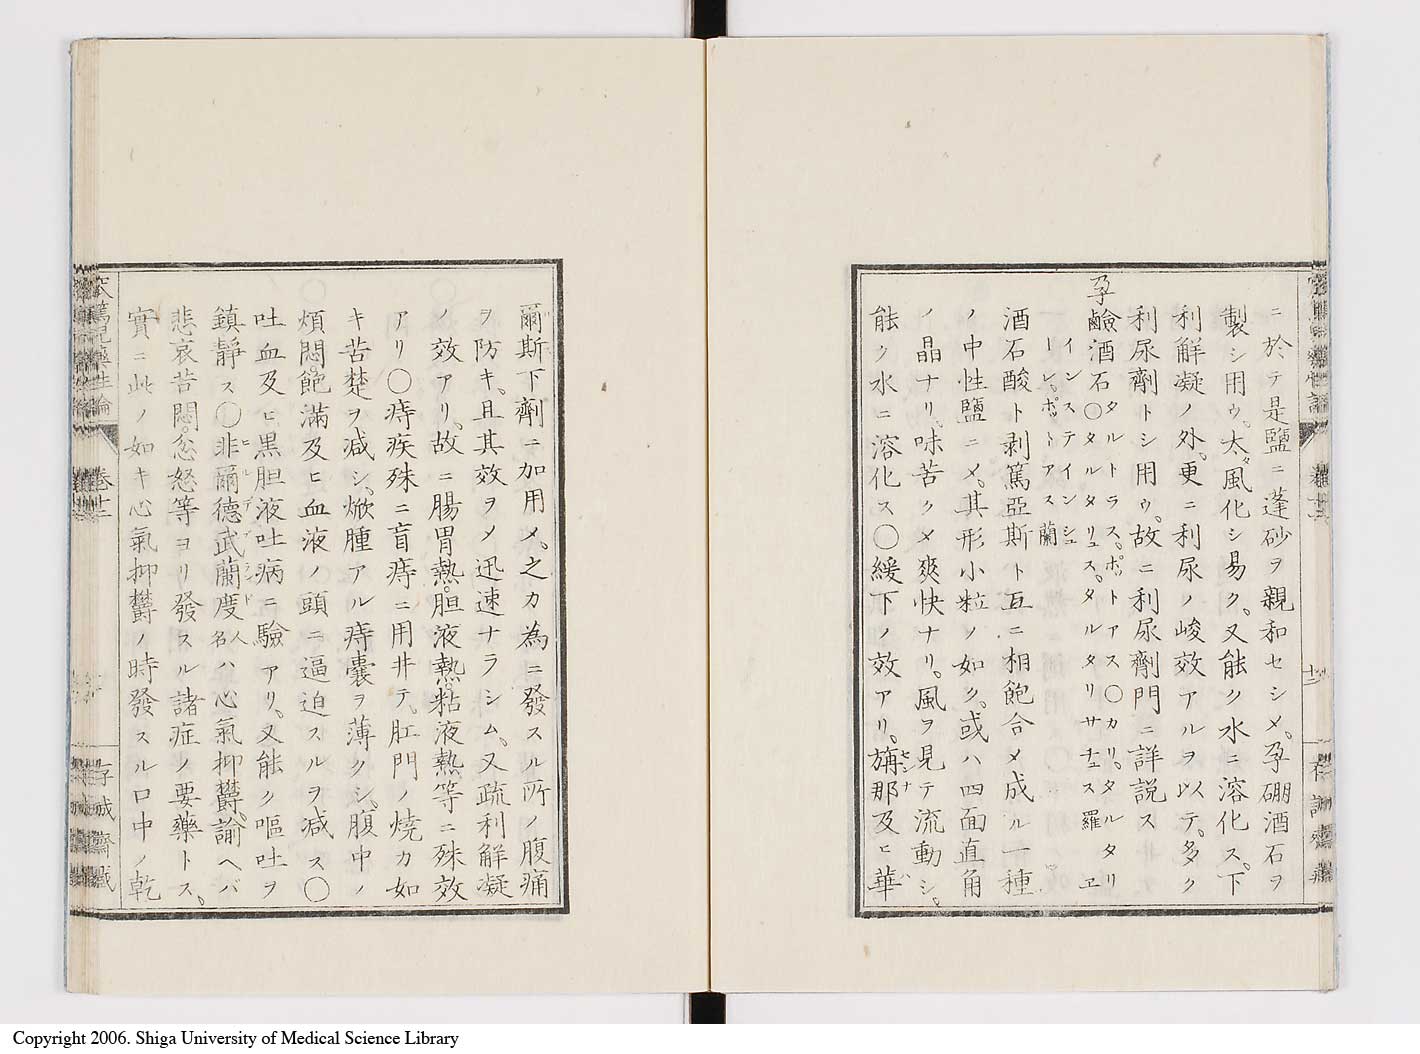 ニ於テ是鹽ニ蓬砂ヲ親和セシメ。孕硼酒石ヲ
製シ用ウ。太タ風化シ易ク。又能ク水ニ溶化ス。下
利解凝ノ外。更ニ利尿ノ峻效アルヲ以テ。多ク
利尿劑トシ用ウ。故ニ利尿劑門ニ詳説ス
孕鹼酒石〇タルトラス。ポットアス〇カリ。タルタリ
インステインシュ〇タルタリュス。タルタリサチュス羅ヱ
ーレ。ポットアス蘭
酒石酸ト剥篤亞斯ト互ニ相飽合メ成ル一種
ノ中性鹽ニメ。其形小粒ノ如ク。或ハ四面直角
ノ晶ナリ。味苦クメ爽快ナリ。風ヲ見テ流動シ。
能ク水ニ溶化ス〇緩下ノ效アリ。旃那及ヒ華
爾斯下劑ニ加用メ。之カ為ニ發スル所ノ腹痛
ヲ防キ。且其效ヲメ迅速ナラシム。又疏利解凝
ノ效アリ。故ニ腸胃熱。胆液熱。粘液熱等ニ殊效
アリ〇痔疾殊ニ盲痔ニ用井テ。肛門ノ燒カ如
キ苦楚ヲ減シ。焮腫アル痔囊ヲ薄クシ。腹中ノ
煩悶。飽滿及ヒ血液ノ頭ニ逼迫スルヲ減ス〇
吐血及ヒ黒胆液吐病ニ驗アリ。又能ク嘔吐ヲ
鎮靜ス〇非爾德武蘭度人名ハ心氣抑鬱。諭ヘバ
悲哀苦悶。忿怒等ヨリ發スル諸症ノ要藥トス。
實ニ此ノ如キ心氣抑鬱ノ時發スル口中ノ乾
藥性論
卷十二
存誠齋藏
Copyright 2006. Shiga University of Medical Science Library